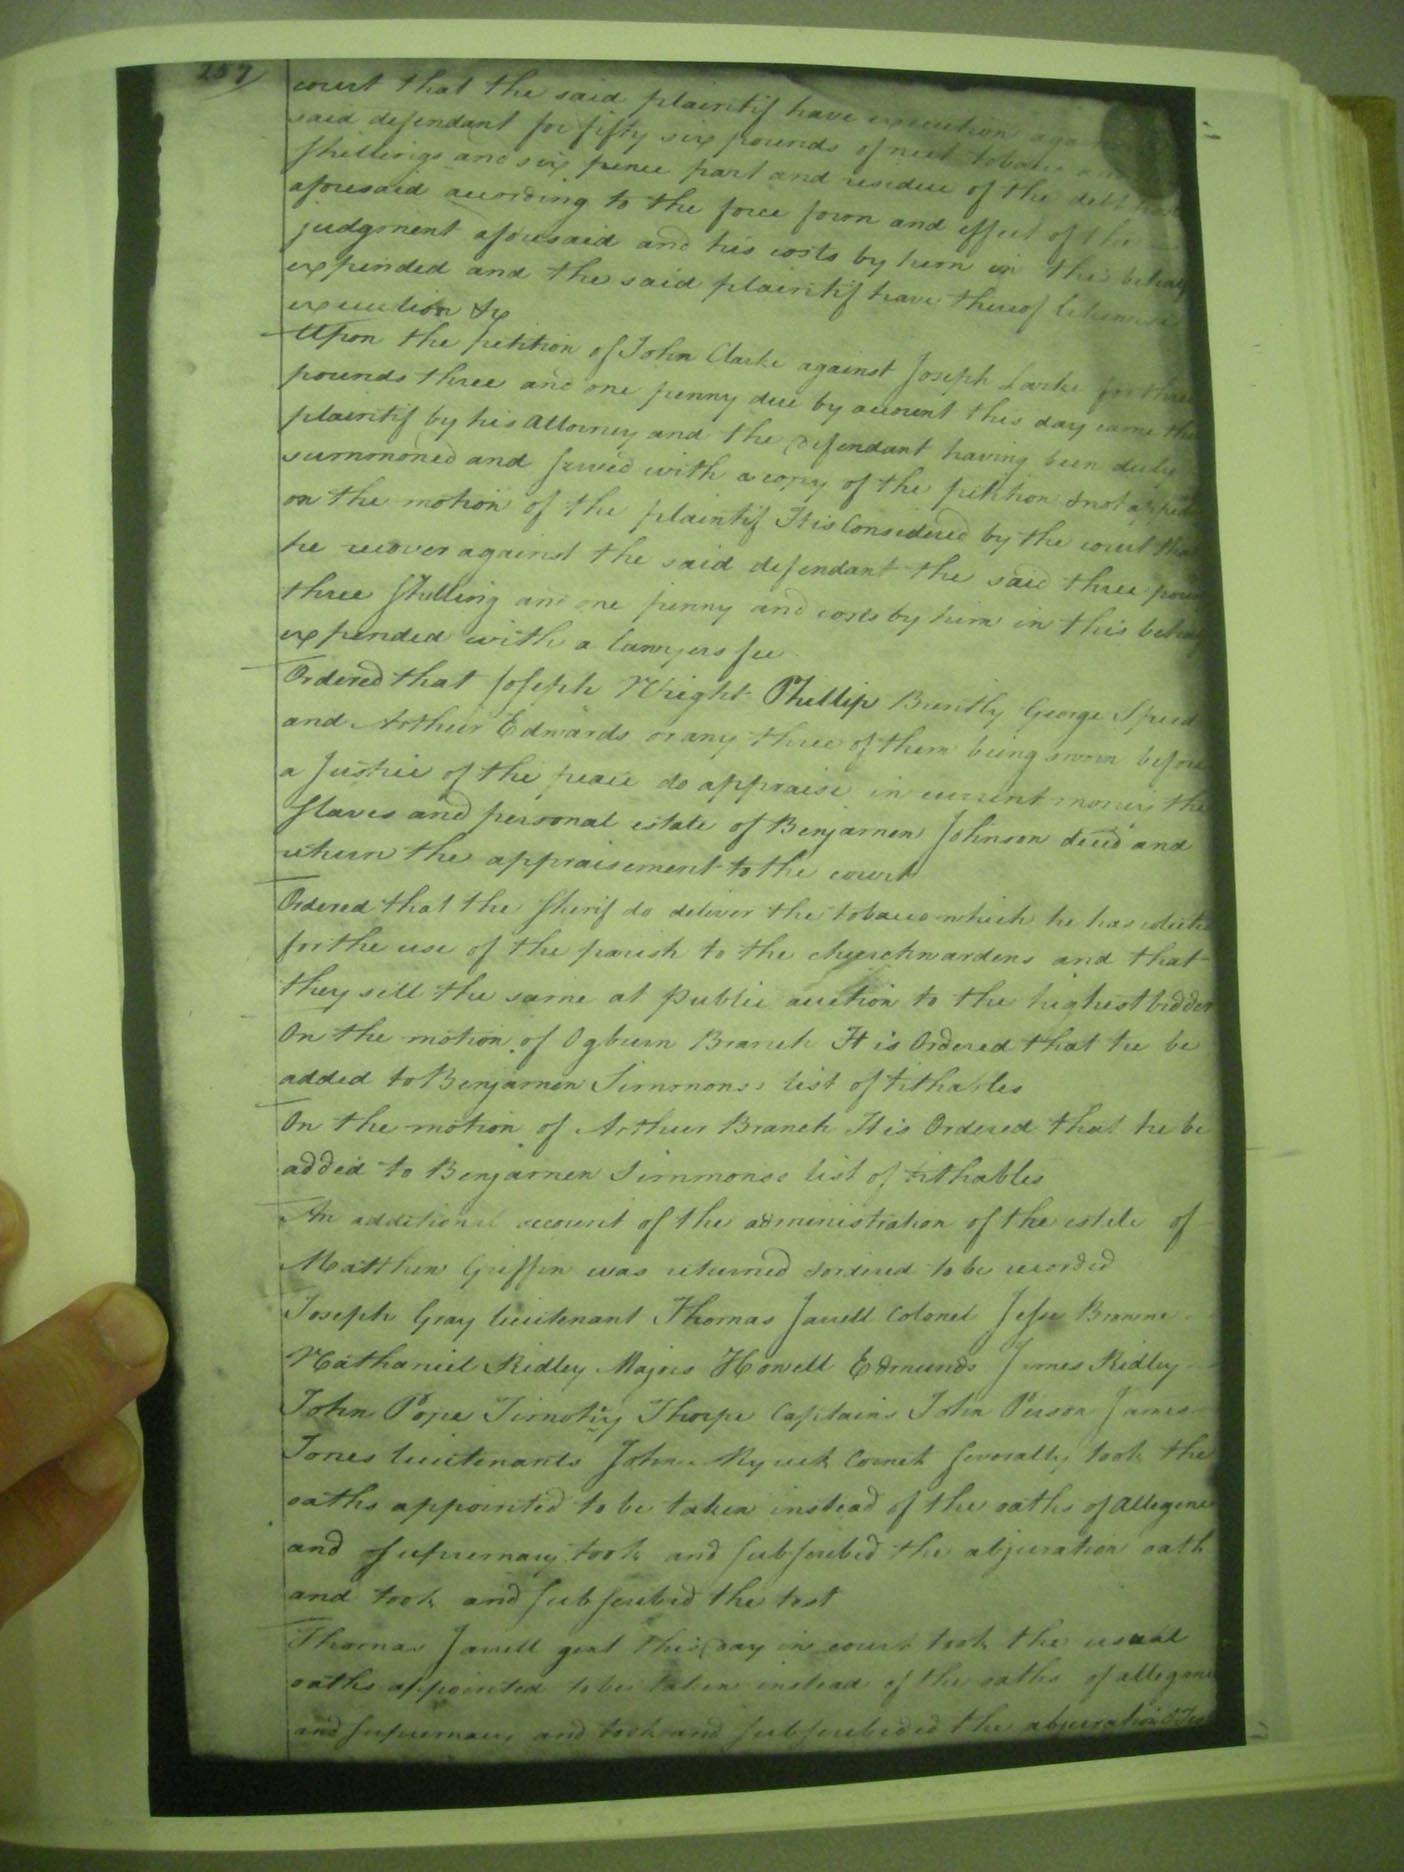 257
court that the said plaintif have execution against
said defendant for fifty six pounds of nett tobacco
shillings and six pence part and residue of the debt
aforesaid according to the force form and effect of the
judgment aforesaid and his costs by him in this behalf
expended and the said plaintif have thereof likewise
execution &c
Upon the petition of John Clarke against Joseph Larke for three
pounds three and one penny due by account this day came the
plaintif by his Attorney and the Defendant having been duly
summoned and served with a copy of the petition & not appearing
on the motion of the plaintif It is Considered by the court that
he recover against the said defendant the said three pound
three Shilling and one penny and costs by him in this behalf
expended with a lawyers fee
Ordered that Joseph Wright Phillip Brantly George Speed
and Arthur Edwards or any three of them being sworn before
a Justice of the peace do appraise in current money the
Slaves and personal estate of Benjamen Johnson deced and
return the appraisement to the court
Ordered that the Sherif do deliver the tobacco which he has
for the use of the parish to the churchwardens and that
they sell the same at public auction to the highest bidder
On the motion of Ogburn Branch It is Ordered that he be
added to Benjamen Simmonss list of tithables
On the motion of Arthur Branch It is Ordered that he be
added to Benjamen Simmonss list of tithables
An additional account of the administration of the estate of
Matthew Griffin was returned & ordered to be recorded
Joseph Gray lieutenant Thomas Jarrell Colonel Jesse Browne
Nathaniel Ridley Majors Howell Edmunds James Ridley
John Pope Timothy Thorpe Captains John Person James
Jones lieutenants John Cornet severally took the
oaths appointed to be taken instead of the oaths of Allegence
and supremacy took and subscribed the abjuration oath
and took and subscribed the test
Thomas Jarrell gent this day in court took the usual
oaths appointed to be taken instead of the oaths of allegence
and supremacy and took and subscribeded the abjuration & Test